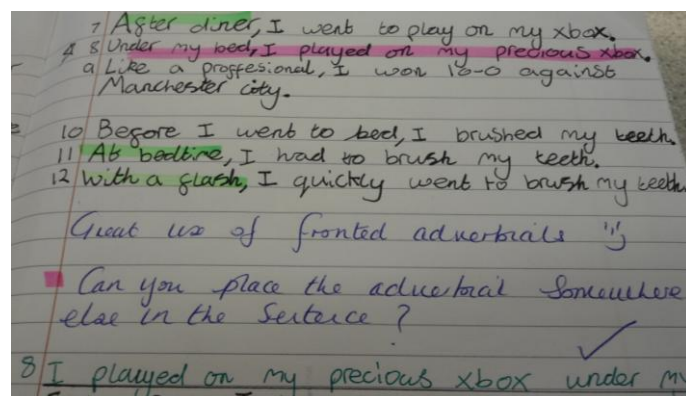 7 After diner, I went to play on my xbox.
4 8 Under my bed, I played on my precious xbox.
9 Like a proffesional, I won 10-0 against
Manchester city.
10 Before I went to bed, I brushed my teeth.
11 At bedtime, I had to brush my teeth.
12 With a flash, I quickly went to brush my teeth.
Great use of fronted adverbials
Can you place the adverbial somewhere
else in the sentence?
8 I played on my precious xbox under my